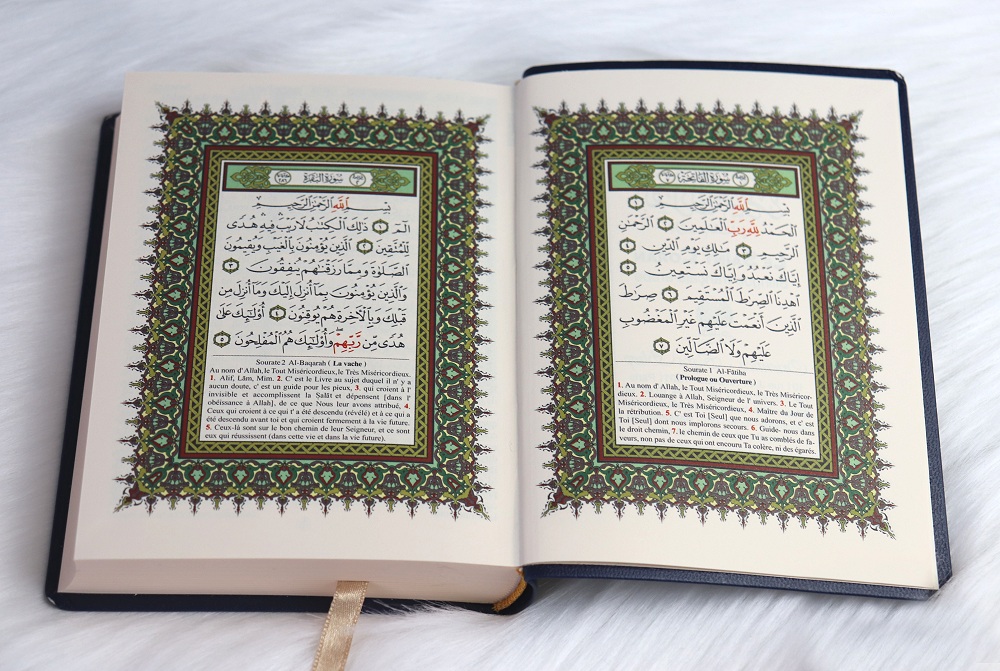 سُورَةُ الْفَاتِحَةِ
بِسْمِ اللَّهِ الرَّحْمَٰنِ الرَّحِيمِ ١
الْحَمْدُ لِلَّهِ رَبِّ الْعَٰلَمِينَ ٢ الرَّحْمَٰنِ
الرَّحِيمِ ٣ مَٰلِكِ يَوْمِ الدِّينِ ٤
إِيَّاكَ نَعْبُدُ وَإِيَّاكَ نَسْتَعِينُ ٥
اهْدِنَا الصِّرَٰطَ الْمُسْتَقِيمَ ٦ صِرَٰطَ
الَّذِينَ أَنْعَمْتَ عَلَيْهِمْ غَيْرِ الْمَغْضُوبِ
عَلَيْهِمْ وَلَا الضَّالِّينَ ٧
Sourate 1 Al-Fâtiha
( Prologue ou Ouverture )
1. Au nom d' Allah, le Tout Miséricordieux, le Très Miséricor-
dieux. 2. Louange à Allah, Seigneur de l' univers. 3. Le Tout
Miséricordieux, le Très Miséricordieux, 4. Maître du Jour de
la rétribution. 5. C' est Toi [Seul] que nous adorons, et c' est
Toi [Seul] dont nous implorons secours. 6. Guide- nous dans
le droit chemin, 7. le chemin de ceux que Tu as comblés de fa-
veurs, non pas de ceux qui ont encouru Ta colère, ni des égarés.
سُورَةُ الْبَقَرَةِ
بِسْمِ اللَّهِ الرَّحْمَٰنِ الرَّحِيمِ
الٓمٓ ١ ذَٰلِكَ الْكِتَٰبُ لَا رَيْبَ فِيهِ هُدًى
لِّلْمُتَّقِينَ ٢ الَّذِينَ يُؤْمِنُونَ بِالْغَيْبِ وَيُقِيمُونَ
الصَّلَوٰةَ وَمِمَّا رَزَقْنَٰهُمْ يُنفِقُونَ ٣
وَالَّذِينَ يُؤْمِنُونَ بِمَا أُنزِلَ إِلَيْكَ وَمَا أُنزِلَ مِن
قَبْلِكَ وَبِالْآخِرَةِ هُمْ يُوقِنُونَ ٤ أُو۟لَٰٓئِكَ عَلَىٰ
هُدًى مِّن رَّبِّهِمْ وَأُو۟لَٰٓئِكَ هُمُ الْمُفْلِحُونَ ٥
Sourate 2 Al-Baqarah ( La vache )
Au nom d' Allah, le Tout Miséricordieux, le Très Miséricordieux.
1. Alif, Lâm, Mim. 2. C' est le Livre au sujet duquel il n' y a
aucun doute, c' est un guide pour les pieux, 3. qui croient à l'
invisible et accomplissent la Salât et dépensent [dans l'
obéissance à Allah], de ce que Nous leur avons attribué, 4.
Ceux qui croient à ce qui t' a été descendu (révélé) et à ce qui a
été descendu avant toi et qui croient fermement à la vie future.
5. Ceux-là sont sur le bon chemin de leur Seigneur, et ce sont
eux qui réussissent (dans cette vie et dans la vie future).